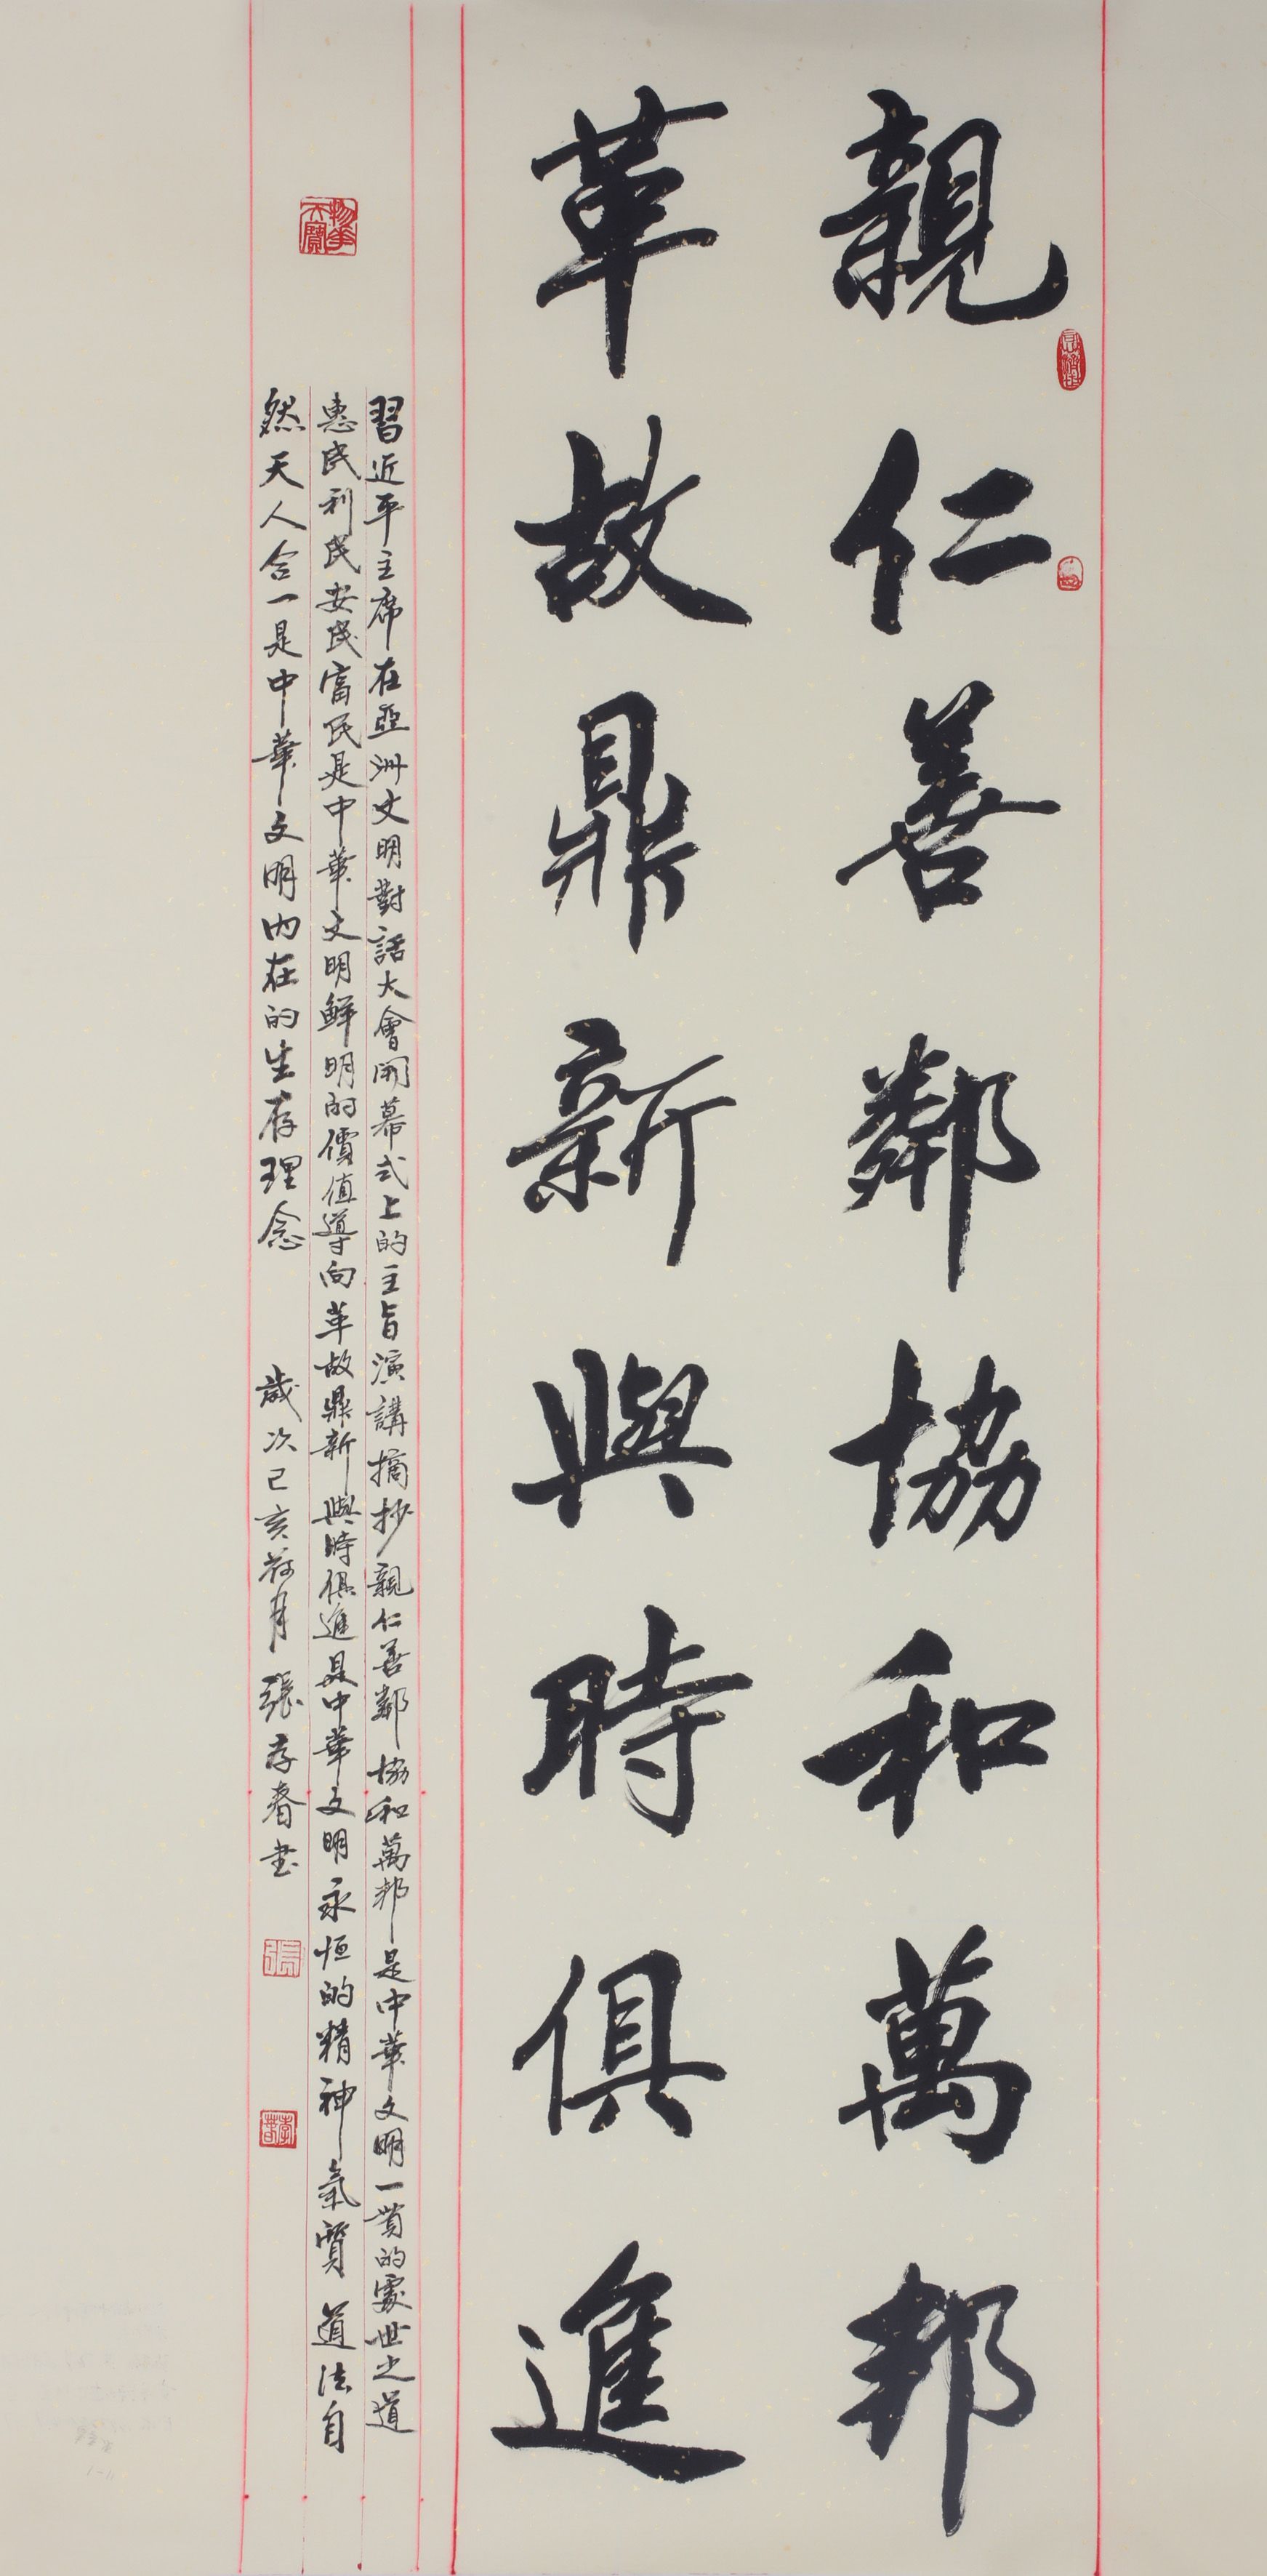 親仁善鄰協和萬邦
革故鼎新與時俱進
習近平主席在亞洲文明對話大會開幕式上的主旨演講摘抄親仁善鄰協和萬邦是中華文明一貫的處世之道
惠民利民安民富民是中華文明鮮明的價值導向革故鼎新與時俱進是中華文明永恒的精神氣質道法自
然天人合一是中華文明內在的生存理念
歲次己亥荷月張存春书
物華天寶
張